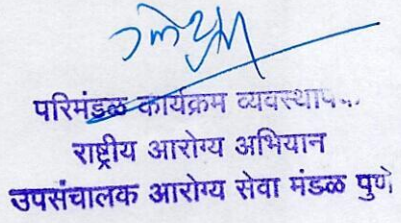 परिमंडळ कार्यक्रम व्यवस्थाप
राष्ट्रीय आरोग्य अभियान
उपसंचालक आरोग्य सेवा मंडळ पुणे